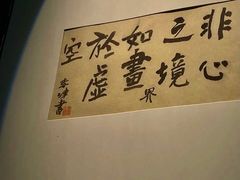 非心
之境
如畫
界
於虛
空